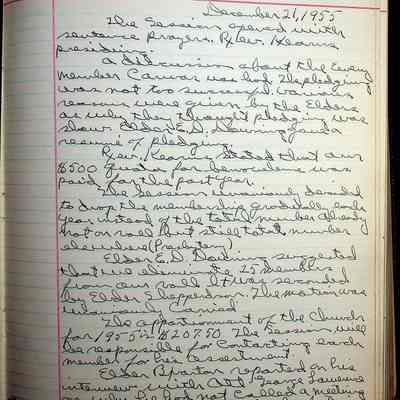 December 21, 1955
The Session opened with
sentence prayers. Rev. Kearns
presiding.
A discussion about the Every
member Canvas was had. The pledging
was not too successful. Various
reasons were given by the Elders
as why they thought pledging was
slow. Elder E.D. Downing gave a
resume of pledging.
Rev. Kearns stated that our
$500 for benevolence was
paid for the past year.
The Session unaniously decided
to drop the membership gradually each
year instead of the total number already
not on roll but still total number
elsewhere (Presbytery)
Elder E.D. Downing suggested
that we eleminate 25 members
from our roll. It was seconded
by Elder Shepperdson. The motion was
unaniously Carried.
The apportionment of the Church
for 1955 is $207.50 The Session will
be responsible for Contacting each
member for his assertment.
Elder Barton reported on his
interview with Att. George Lawrence
as why he had not Called a meeting